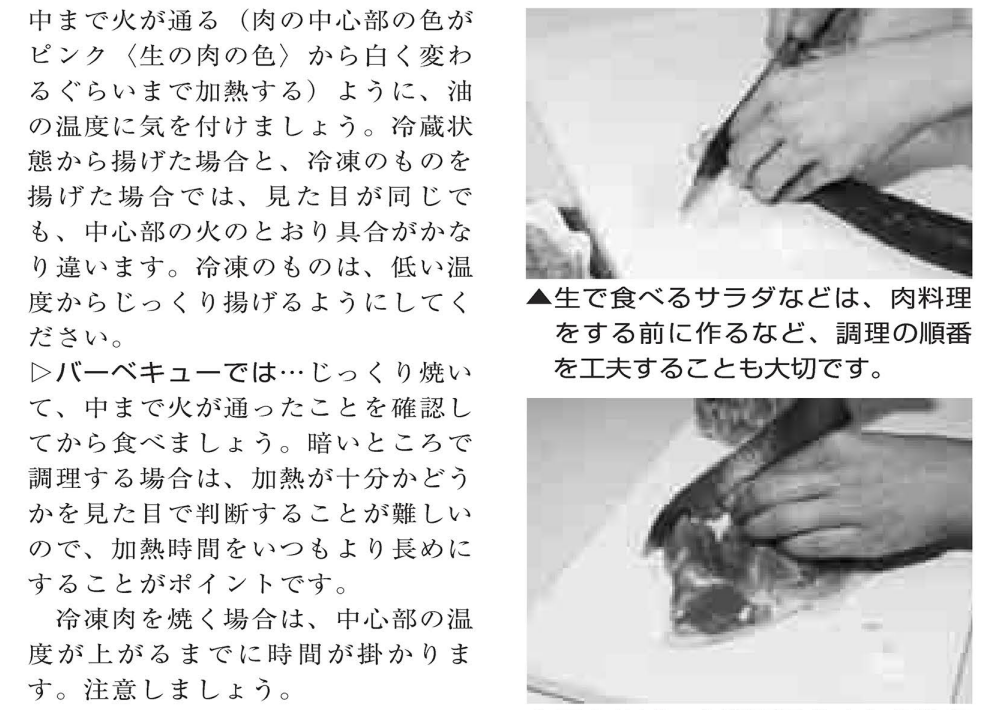 中まで火が通る（肉の中心部の色が
ピンク〈生の肉の色〉から白く変わ
るぐらいまで加熱する）ように、油
の温度に気を付けましょう。冷蔵状
態から揚げた場合と、冷凍のものを
揚げた場合では、見た目が同じで
も、中心部の火のとおり具合がかな
り違います。冷凍のものは、低い温
度からじっくり揚げるようにしてく
ださい。
▷バーベキューでは…じっくり焼い
て、中まで火が通ったことを確認し
てから食べましょう。暗いところで
調理する場合は、加熱が十分かどう
かを見た目で判断することが難しい
ので、加熱時間をいつもより長めに
することがポイントです。
　冷凍肉を焼く場合は、中心部の温
度が上がるまでに時間が掛かりま
す。注意しましょう。
▲生で食べるサラダなどは、肉料理
をする前に作るなど、調理の順番
を工夫することも大切です。